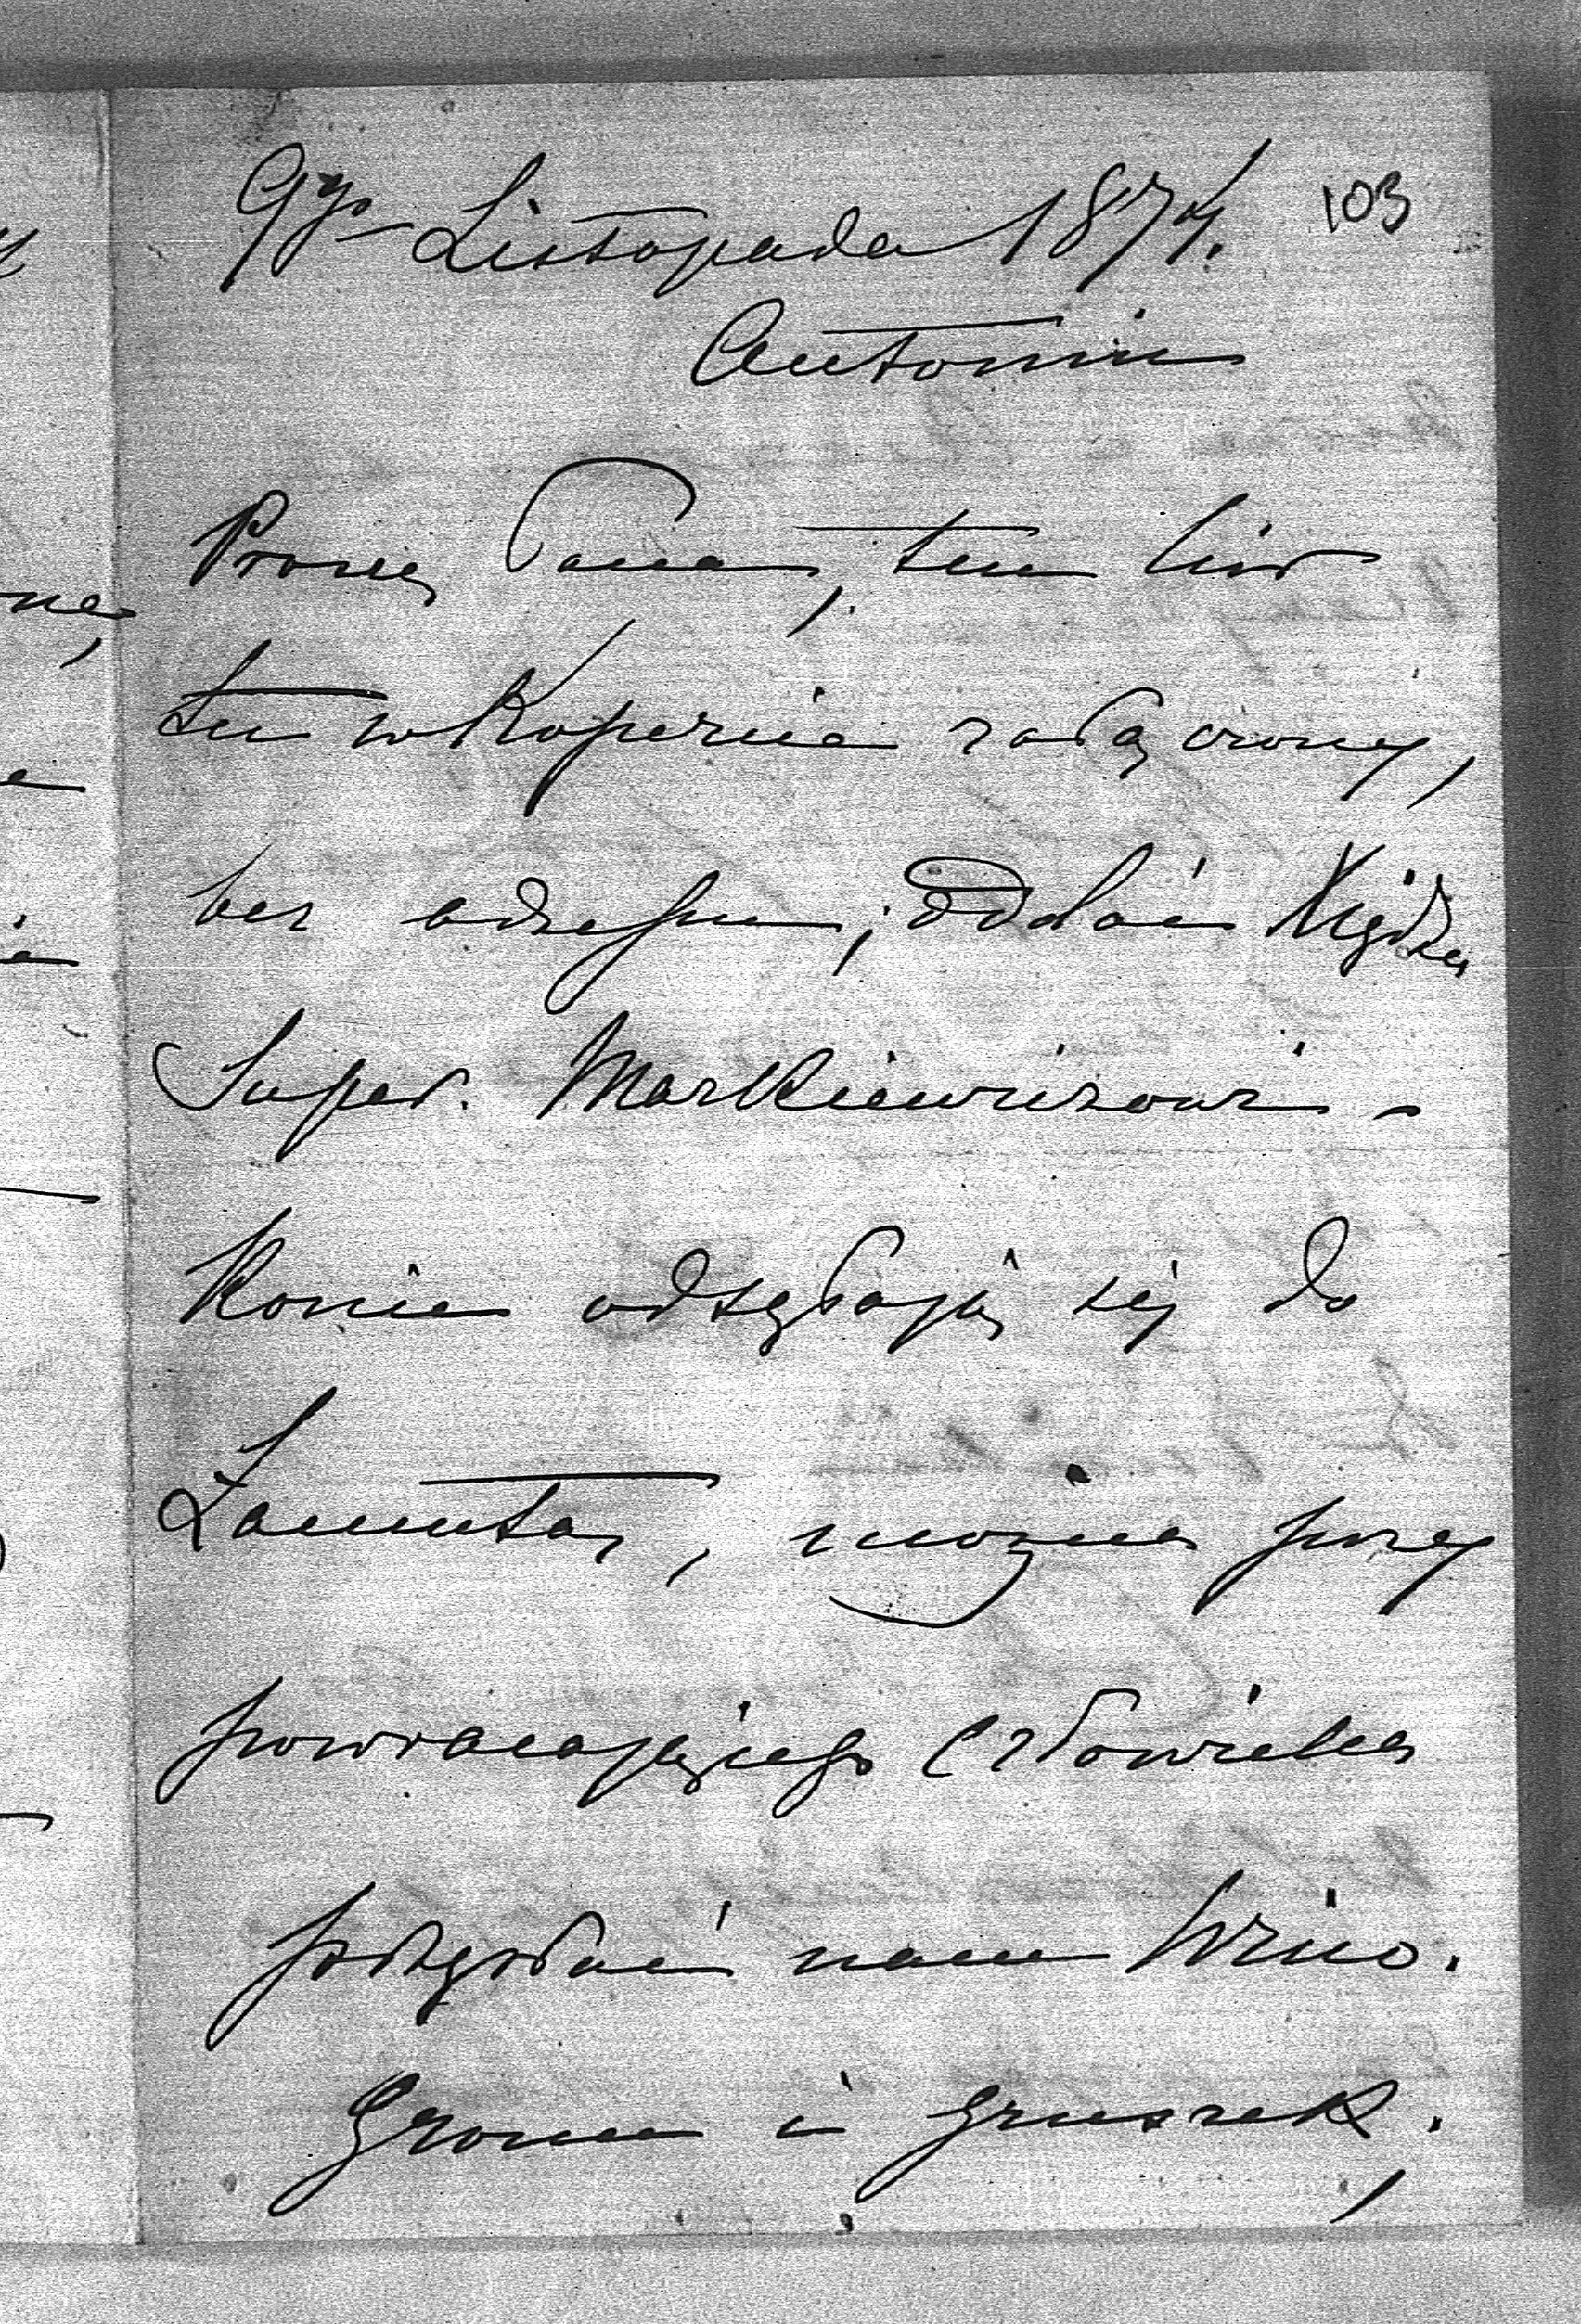 9go Listopada 1874. 103
Antonin
Proszę Pana, ten list
tu w Kopercie załączony,
bez adressu, oddać Xiędzu
Super. Markiewiczowi -
Konie odsyłają się do
Łańcuta, można przez
powracającego człowieka
podesłać nam
Gron i gruszek.